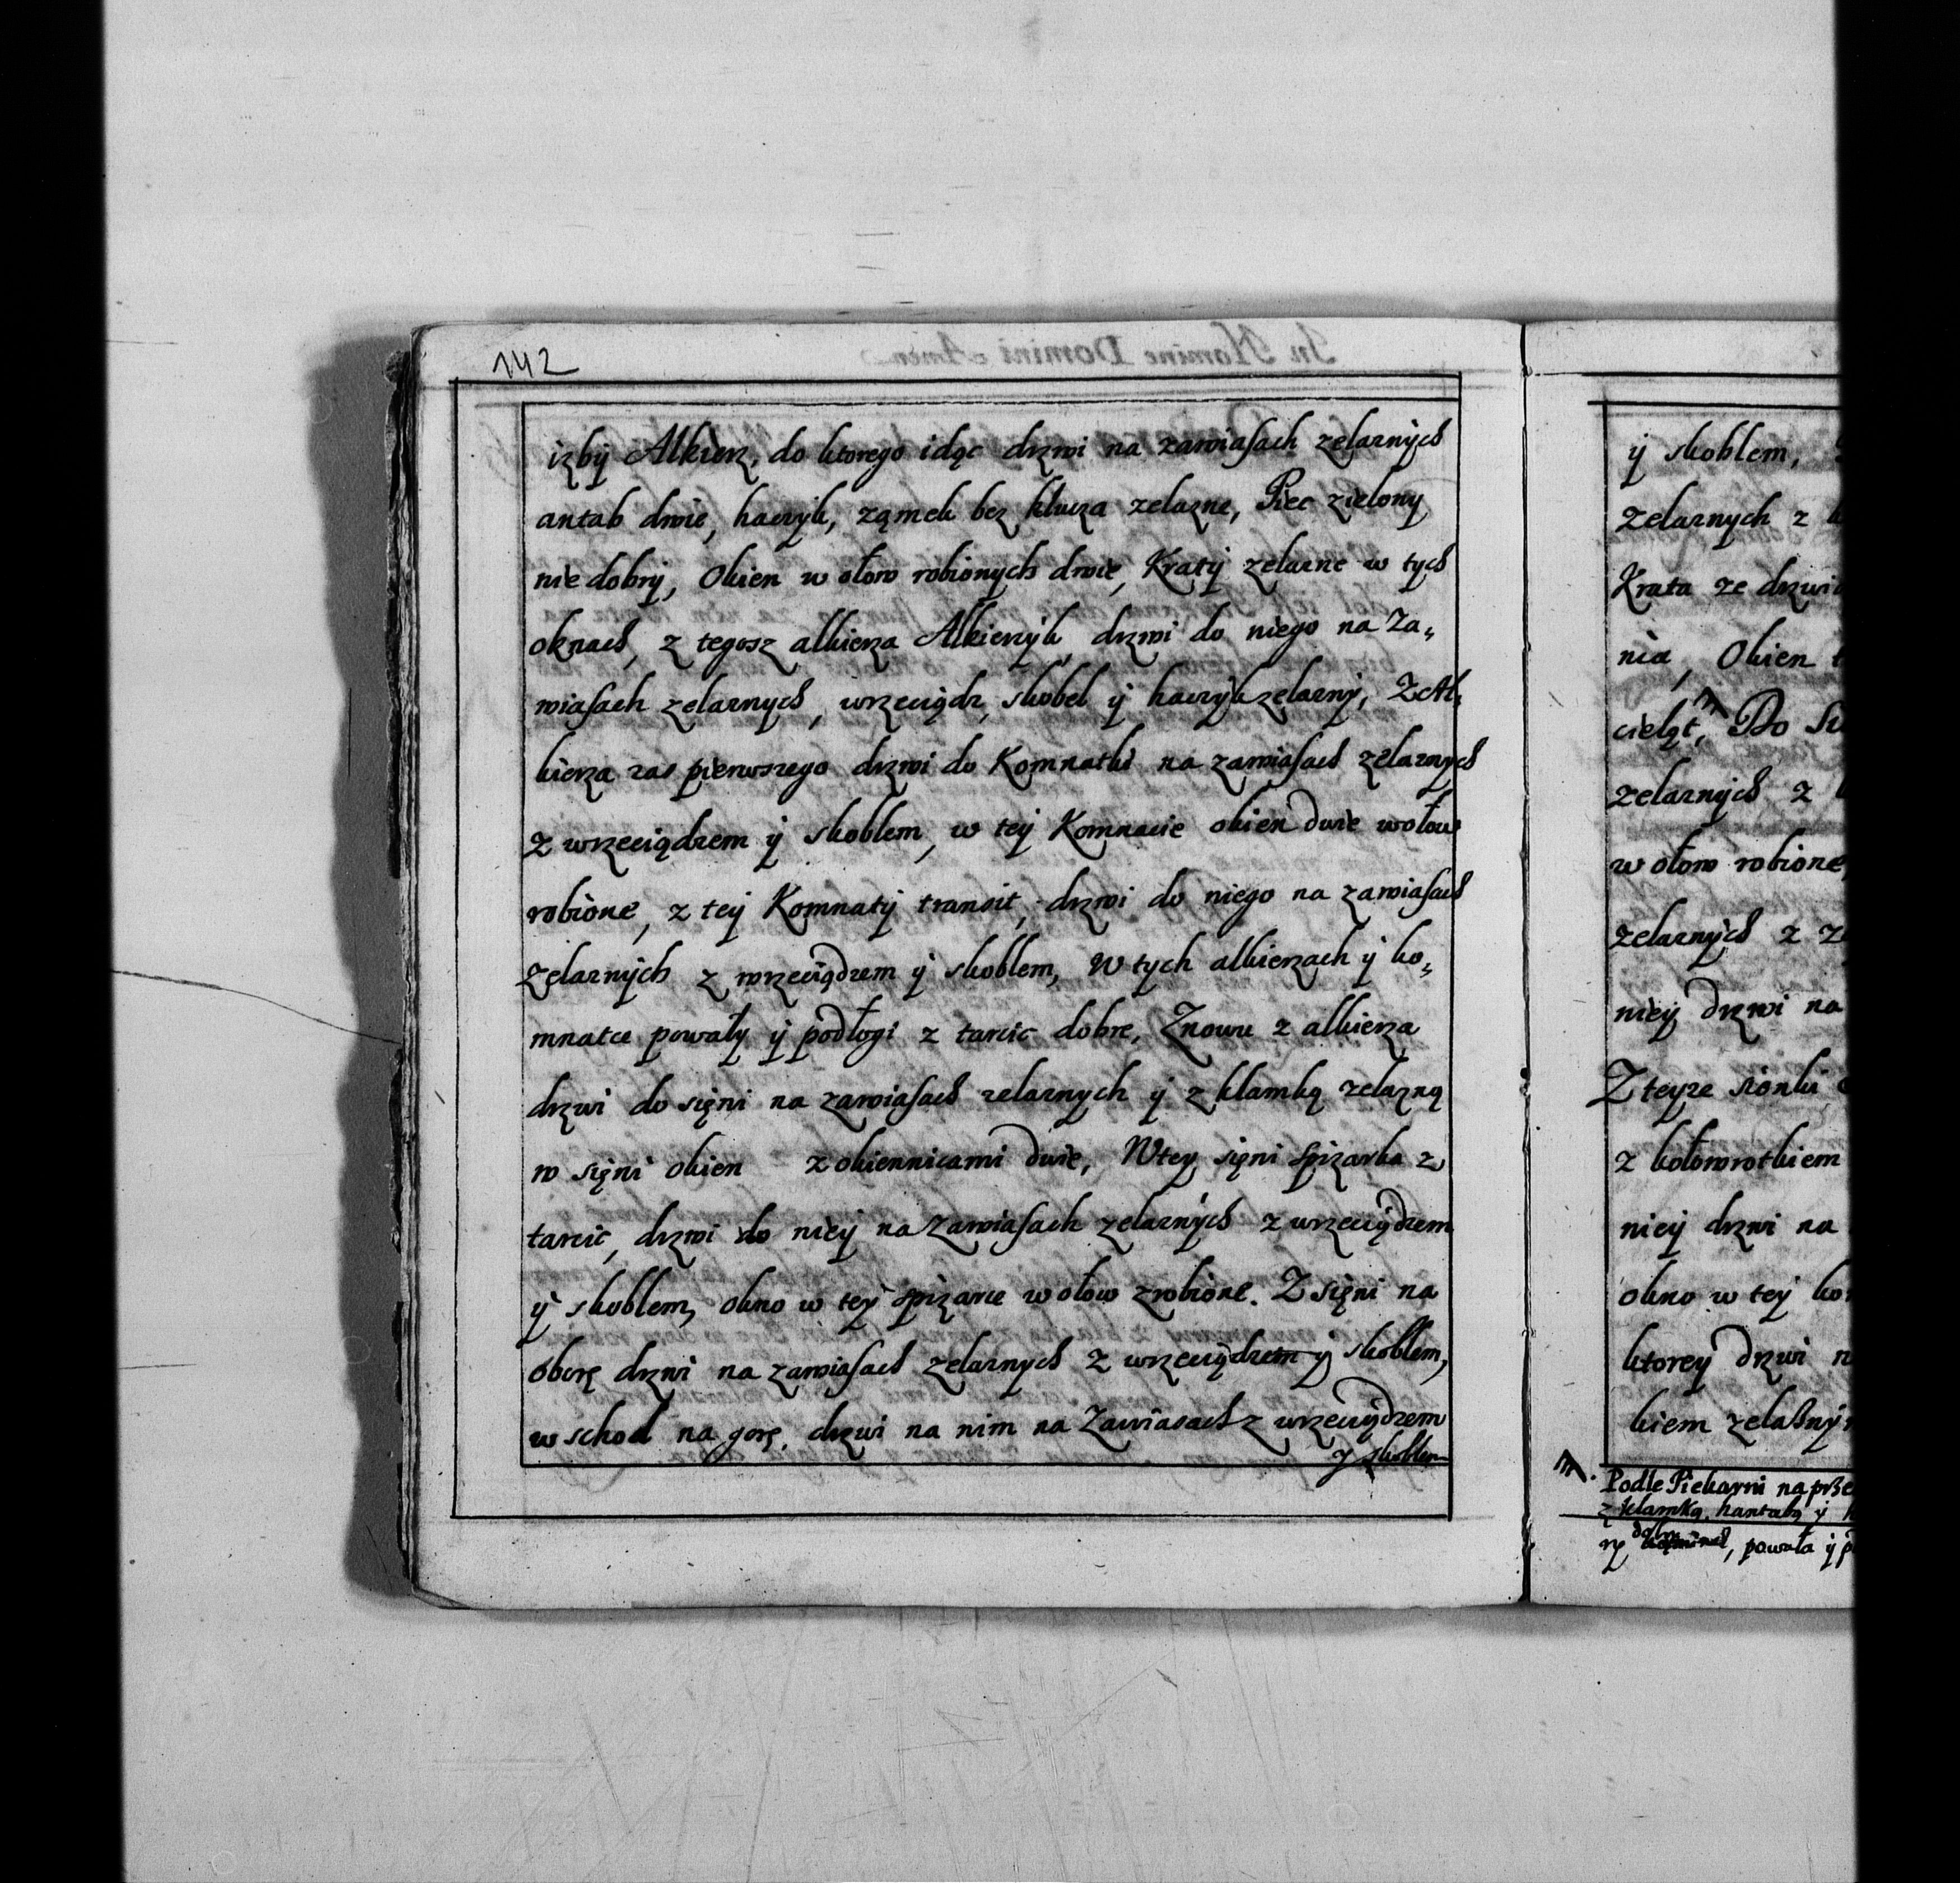 142
izbÿ Alkierz, do ktorego idąc drzwi na zawiasach zelaznÿch
antab dwie, haczyk, ząmek bez klucza zelazne, Piec zielony
nie dobrÿ, Okien w ołow robionych dwie, Kratÿ zelazne w tych
oknach, z tegosz alkierza Alkierzÿk, drzwi do niego na Za=
wiasach zelaznych, wrzeciądz, skobel ÿ haczÿk zelaznÿ, Z Al=
kierza zas pierwszego drzwi do Komnatki na zawiasach zelaznych
z wrzeciądzem ÿ skoblem, w teÿ Komnacie okien dwie w ołow
robione, z teÿ Komnatÿ transit, drzwi do niego na zawiasach
zelaznÿch z wrzeciądzem ÿ skoblem, W tych alkierzach ÿ ko=
mnatce powałÿ ÿ podłogi z tarcic dobre, Znowu z alkierza
drzwi do sięni na zawiasach zelaznych ÿ z klamką zelazną
w sięni okien z okiennicami dwie, W tey sięni spizarka z
tarcic, drzwi do nieÿ na zawiasach zelaznÿch z wrzeciądzem
ÿ skoblem, okno w teÿ spizarce w ołow zrobione. Z sięni na
oborę drzwi na zawiasach zelaznych z wrzeciądzem y skoblem,
w schod na gorę, drzwi na nim na Zawiasach z wrzeciądzem
y skoblem
ÿ skoblem,
zelaznych z
Krata ze drzwi
nia, Okien
cieląt, Do
zelaznÿch z
w ołow robione,
zelaznÿch z
nieÿ drzwi na
Z teyze sionki
z kołowrotkiem
nieÿ drzwi na
okno w teÿ
ktorey drzwi
kiem
Podle Piekarni
z klamką, hantabą ÿ
dobry
, powała ÿ